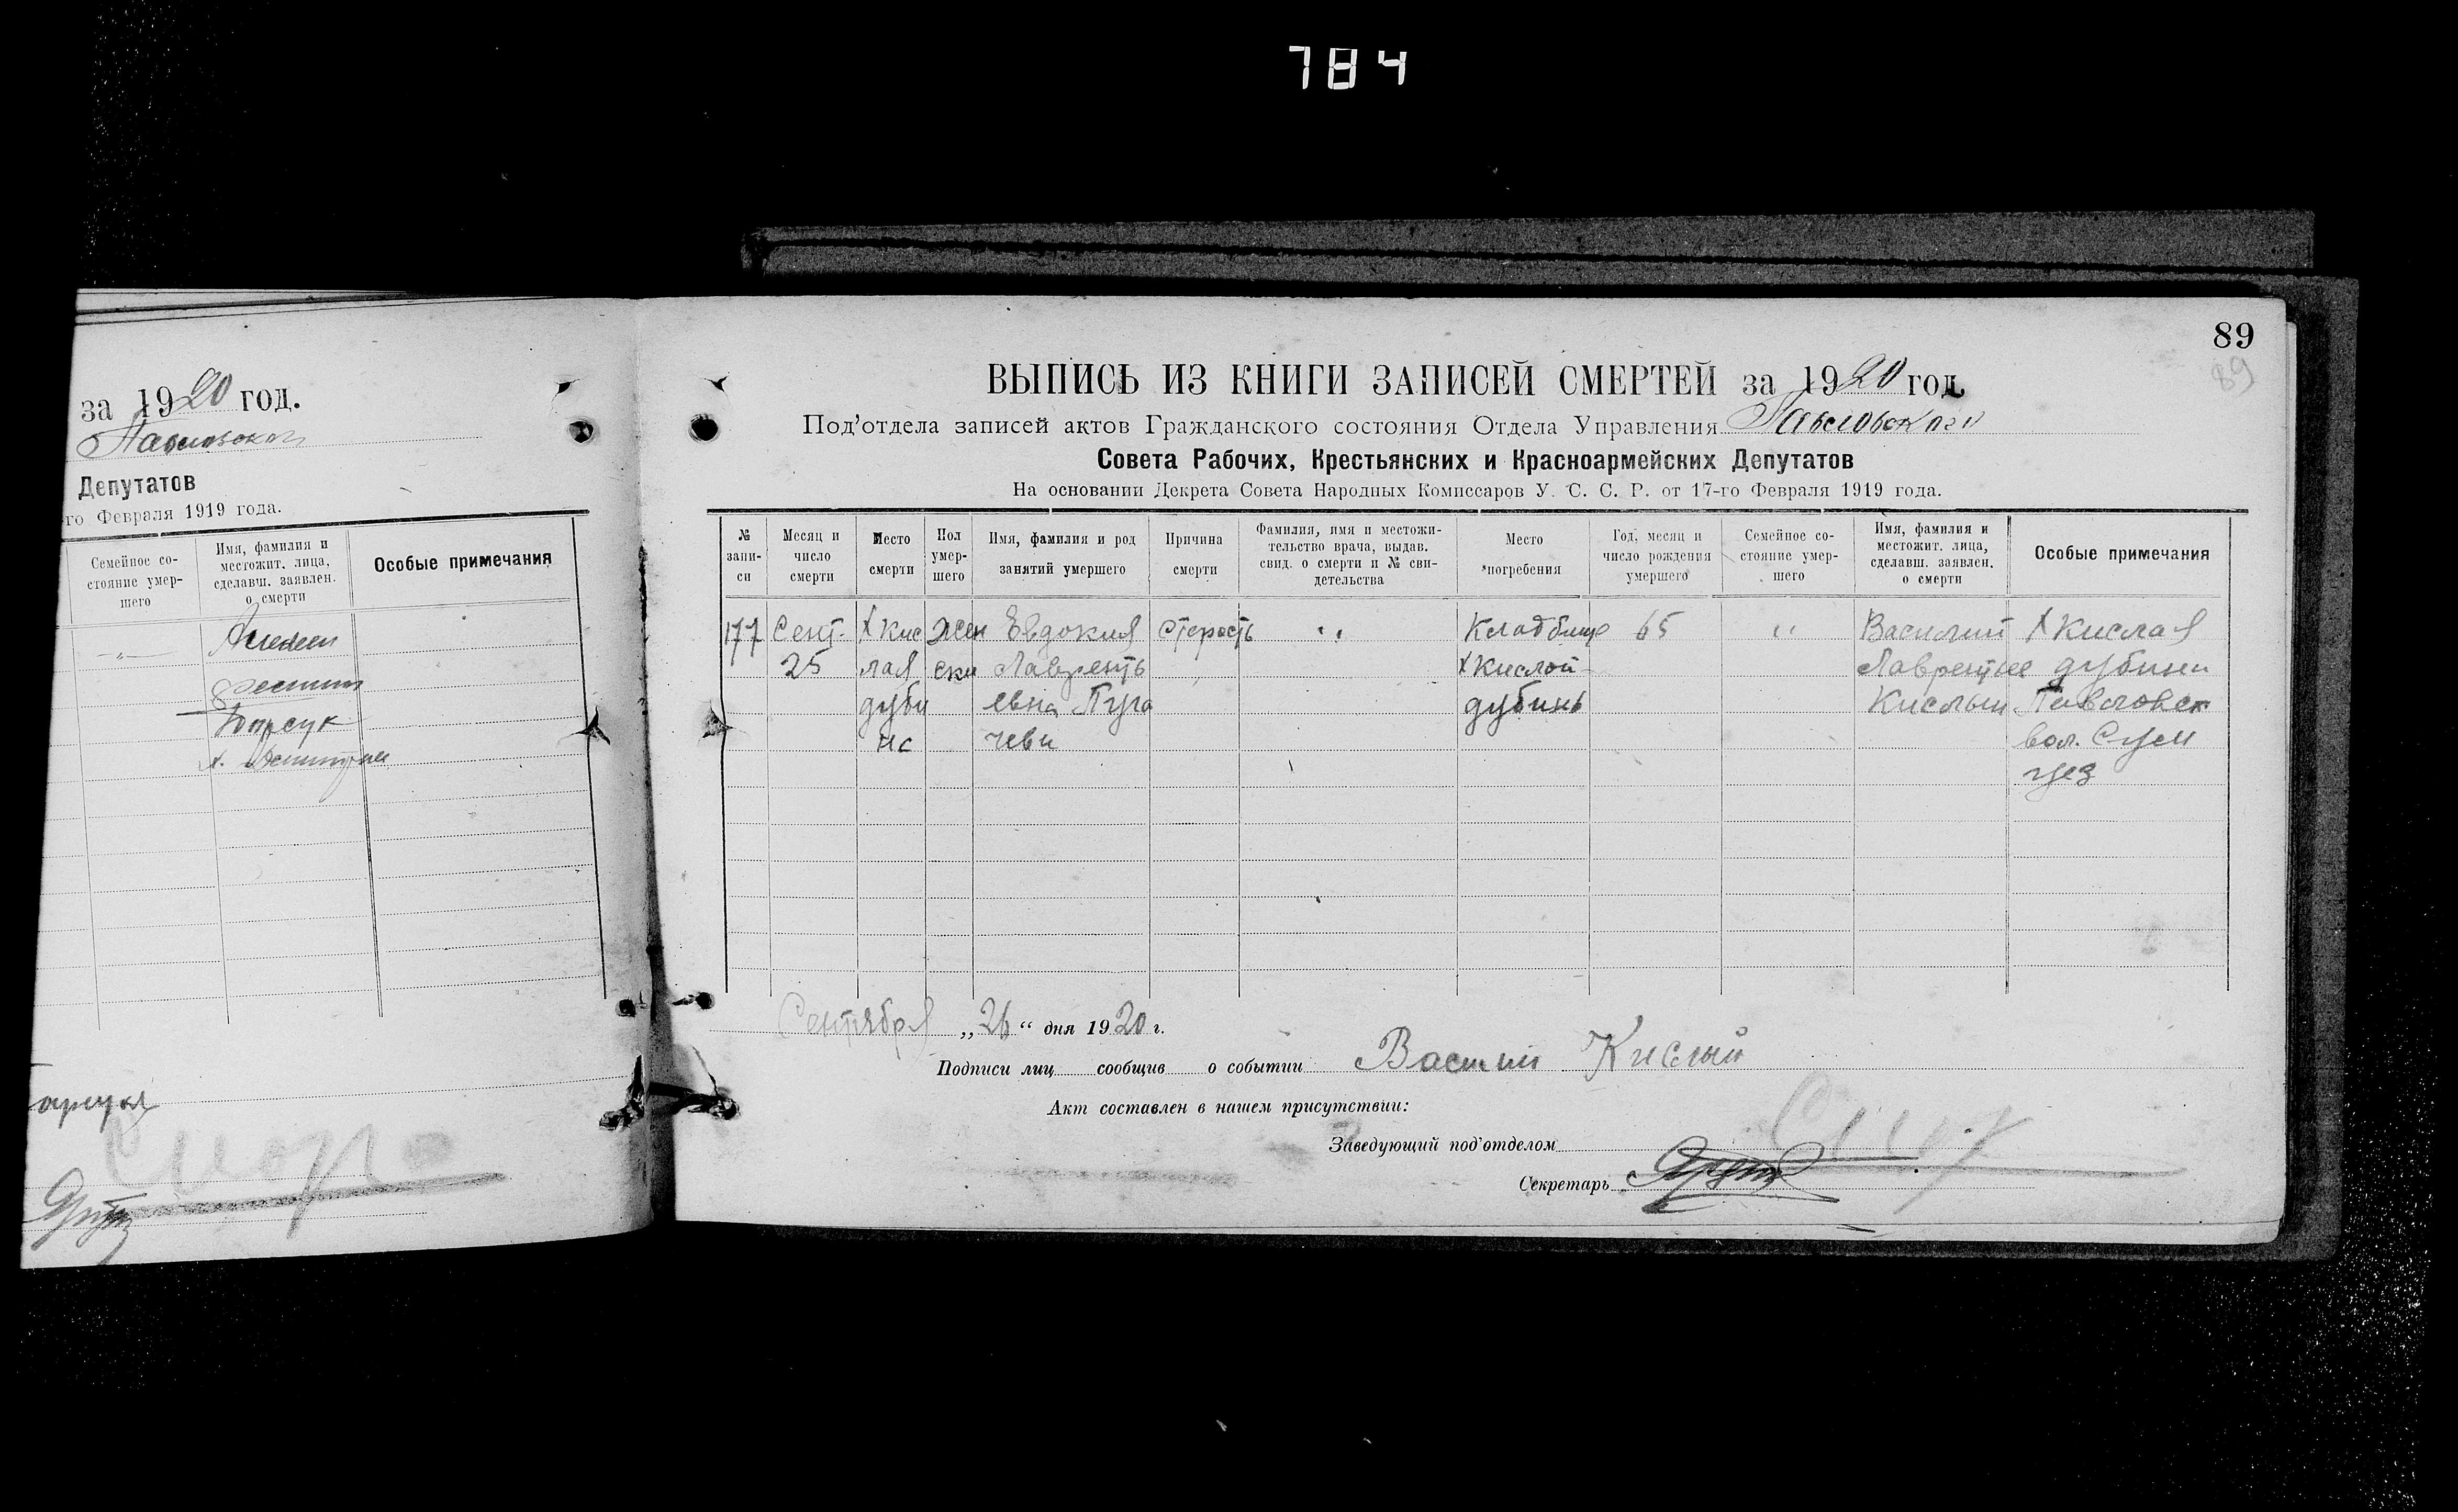 784
за 1920 год.
Павловской
Депутатов
го Февраля 1919 года.
Семейное со-
стояние умер-
шего
Имя, фамилия и
местожит. лица,
сделавш. заявлен.
о смерти
Особые примечания
89
89
ВЫПИСЬ ИЗ КНИГИ ЗАПИСЕЙ СМЕРТЕЙ за 1920 год
Под'отдела записей актов Гражданского состояния Отдела Управления Павловской
Совета Рабочих, Крестьянских и Красноармейских Депутатов
На основании Декрета Совета Народных Комиссаров У. С. С. Р. от 17-го Февраля 1919 года.
№
запи-
си
Месяц и
число
смерти
Место
смерти
Пол
умер-
шего
Имя, фамилия и род
занятий умершего
Причина
смерти
Фамилия, имя и местожи-
тельство врача, выдав.
свид. о смерти и № сви-
детельства
Место
погребения
Год, месяц и
число рождения
умершего
Семейное со-
стояние умер-
шего
Имя, фамилия и
местожит. лица,
сделавш. заявлен.
о смерти
Особые примечания
177
Сент.
25
Х Кис
лая
дуби
на
жен
ски
Евдокия
Лаврентъ
евна Пуга
чева
старость
"
Кладбище
Х Кислой
дубинь
65
"
Василий
Лаврентье
Кислый
Х Кислая
дубини
Павловск
вол. Сум
уез
Сентября „26“ дня 1920 г.
Подписи лиц сообщив о событии Василий Кислый
Акт составлен в нашем присутствии:
Заведующий под'отделом
Секретарь